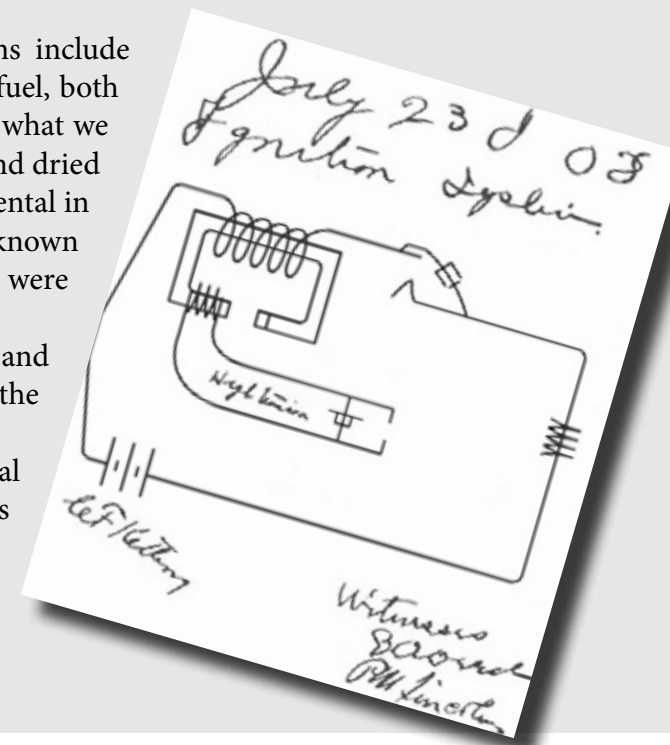 ns include
fuel, both
what we
nd dried
ental in
known
were
and
the
al
s
July 23d 08
Ignition System.
High tension
C.F. Kettering
Witnesses